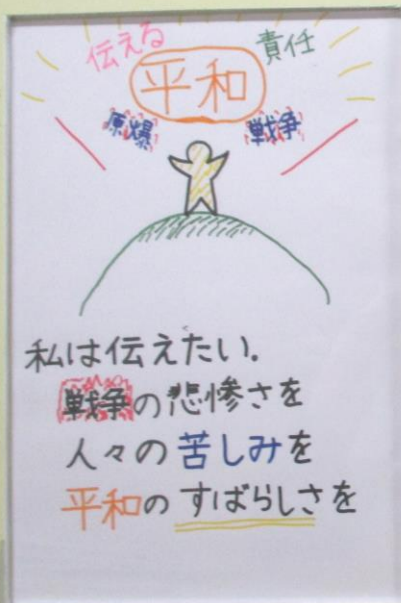 伝える
責任
平和
原爆
戦争
私は伝えたい.
戦争の悲惨さを
人々の苦しみを
平和のすばらしさを